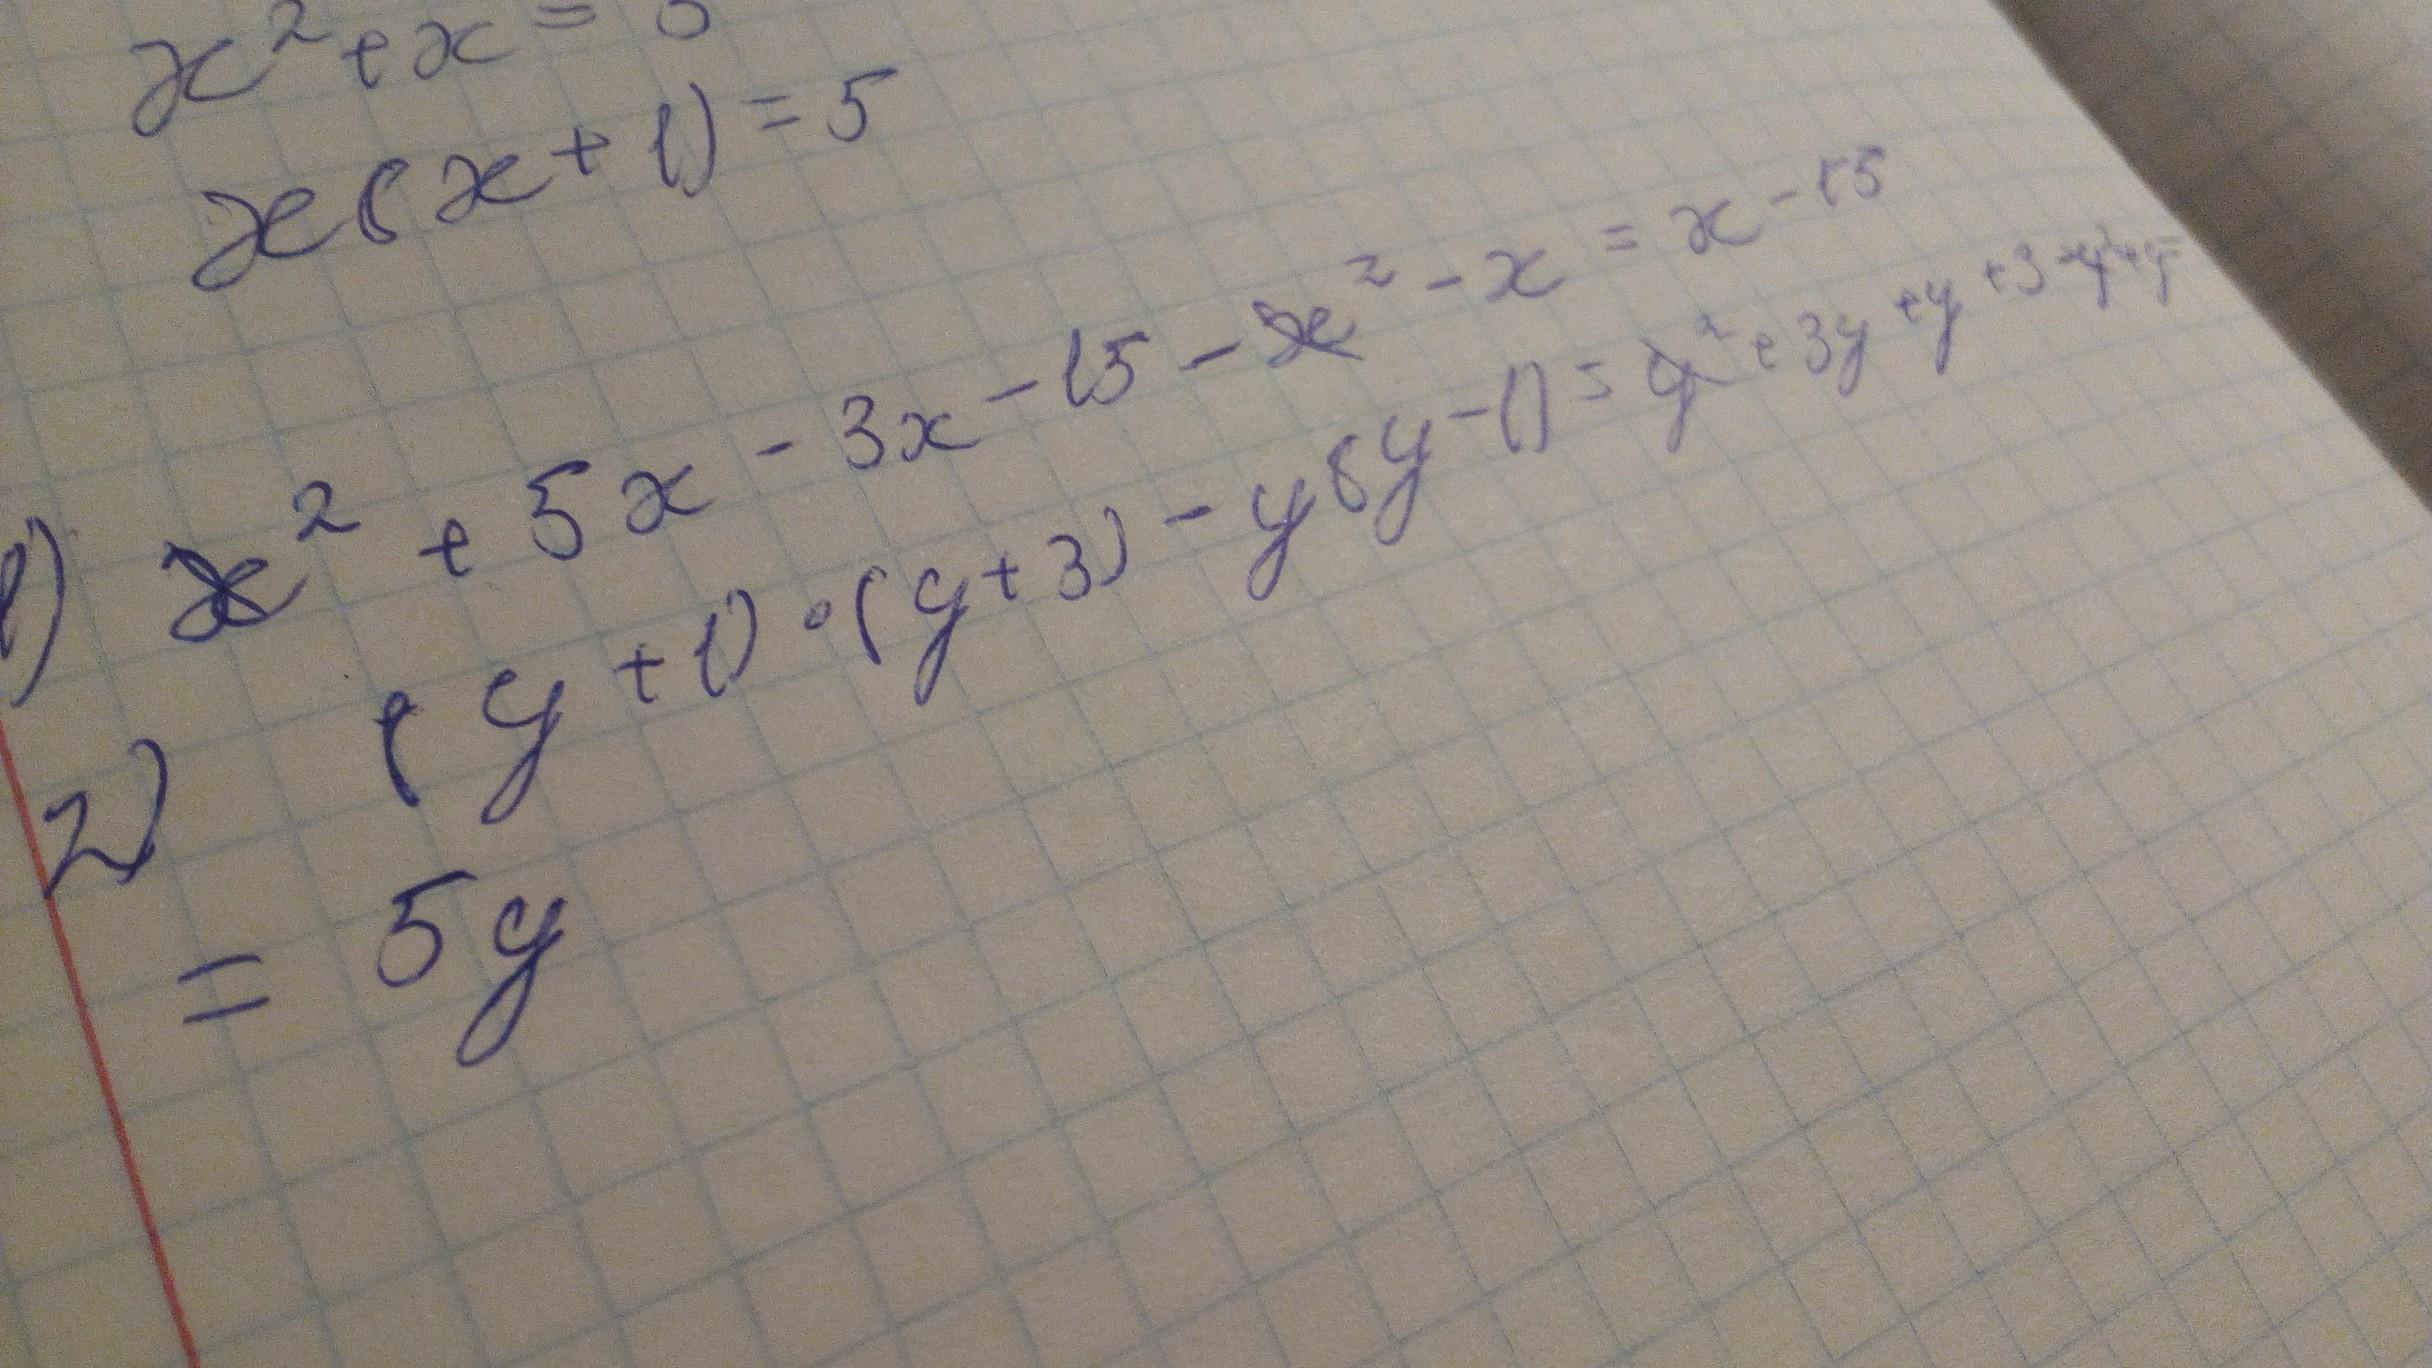 x² + x = 5
x(x + 1) = 5
1) x² + 5x - 3x - 15 - x² - x = x - 15
2) (y + 1) · (y + 3) - y(y - 1) = y² + 3y + y + 3 - y² + y =
= 5y